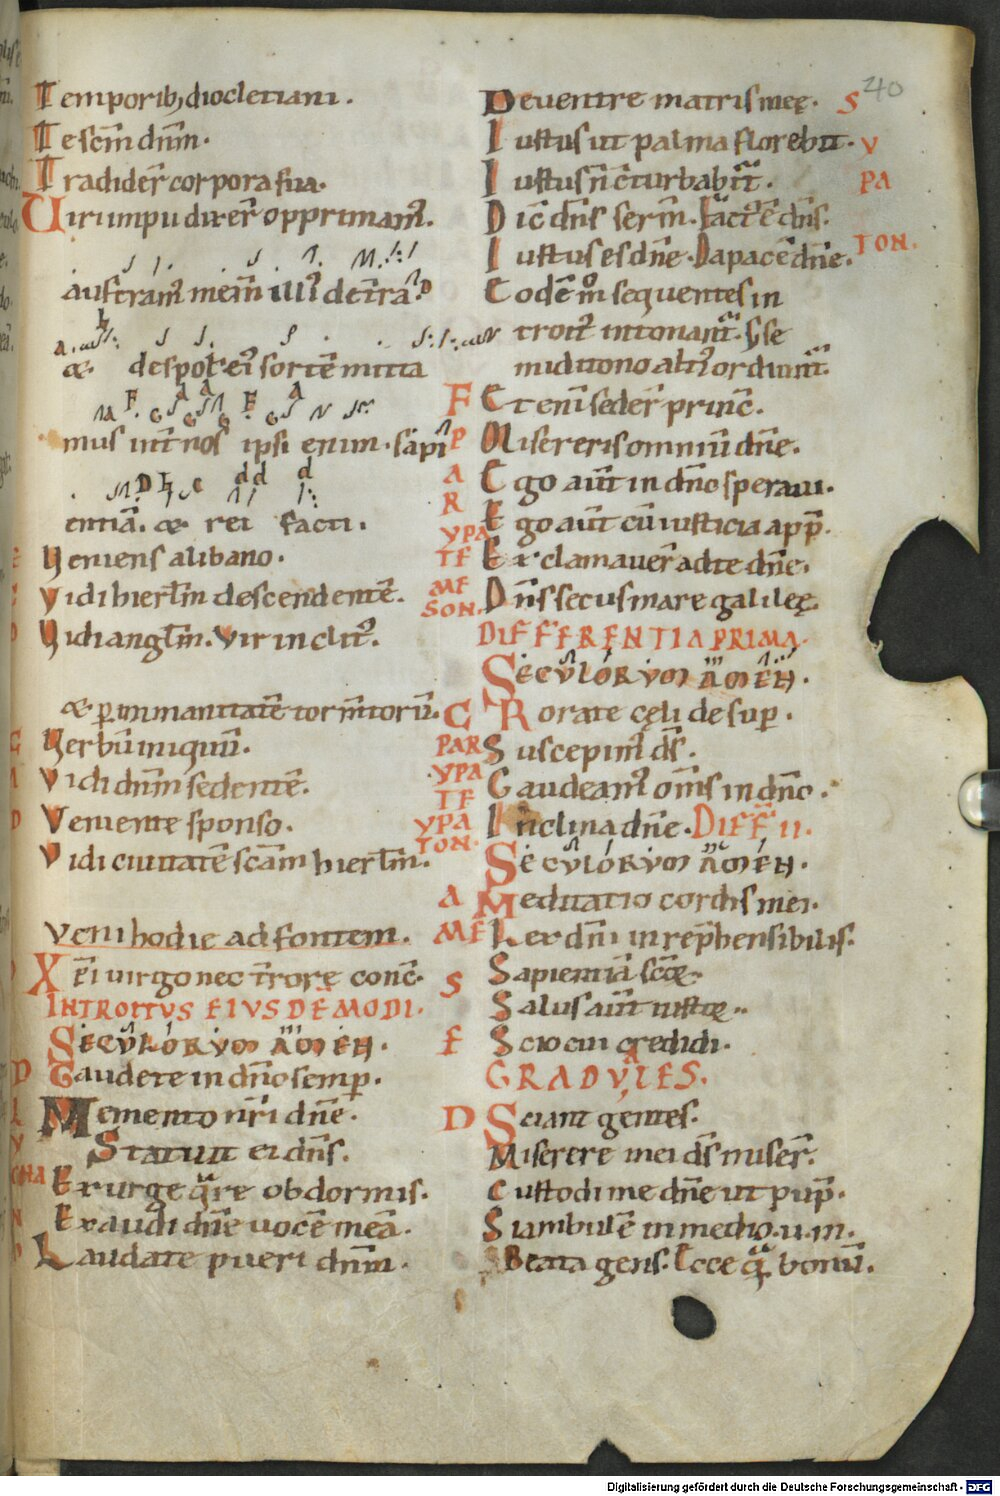 Temporib; diocletiani.
Te scm̄ dnm̄.
Tradider̄ corpora sua.
Uirum pudixer̄ opprimam̄.
auferam᷒ mem̄ illi᷒ de tr̄a.
æ. despol ei᷒ sortē mitta
mus int̄ nos ipsi enim. sapi
entiā. æ. rei facti.
Veniens a libano.
Vidi hierl̄m descendentē.
Vidi angl̄m. Vir inclit᷒.
æ. p̱ immanitatē torm̄torū.
Verbū iniquū.
Vidi dnm̄ sedentē.
Veniente sponso.
Vidi ciuitatē scām hierl̄m.
Veni hodie ad fontem.
Xp̄i uirgo nec t̄rorę conc̄.
INTROITVS EIVSDĒ MODI.
SECVLORVM AMEN.
Gaudete in dn̄o semp̱.
Memento nr̄i dn̄e.
Statuit ei dn̄s.
Exurge q̄re obdormis.
Exaudi dn̄e uocē meā.
Laudate pueri dnm̄.
De uentre matris meę. S
Iustus ut palma florebit. V
Iustus n̄ c̄turbabit̄. PA
Dic̄ dn̄s serm̄. Fact᷒ ē dn̄s.
Iustus es dn̄e. Da pacē dn̄e. TON.
Eodē m̊ sequentes in
troit᷒ intonant̄. S; se
miditono alti᷒ ordiunt̄.
F Etenī seder̄ princ̄.
P Misereris omniū dn̄e.
A Ego aut̄ in dn̄o speraui.
R Ego aut̄ cū iusticia app̄.
YPA
TE Exclamauer̄ ad te dn̄e.
ME
SON. Dn̄s secus mare galileę.
DIFFERENTIA PRIMA.
SECVLORVM AMEN.
C Rorate cęli desup̱.
PAR Suscepim᷒ ds̄.
YPA
TE Gaudeam᷒ om̄s in dn̄o.
YPA
TON. Inclina dn̄e. DIFF II.
SECVLORVM AMEN.
A Meditatio cordis mei.
ME Lex dn̄i inrep̄hensibilis.
S Sapientiā scōę.
Salus aut̄ iustoę.
F Scio cui credidi.
GRADVALES.
D Sciant gentes.
Miserere mei ds̄ miser̄.
Custodi me dn̄e ut pup̄.
Si ambulē in medio. u. m.
Beata gens. Ecce q̄ bonū.
40
Digitalisierung gefördert durch die Deutsche Forschungsgemeinschaft - DFG